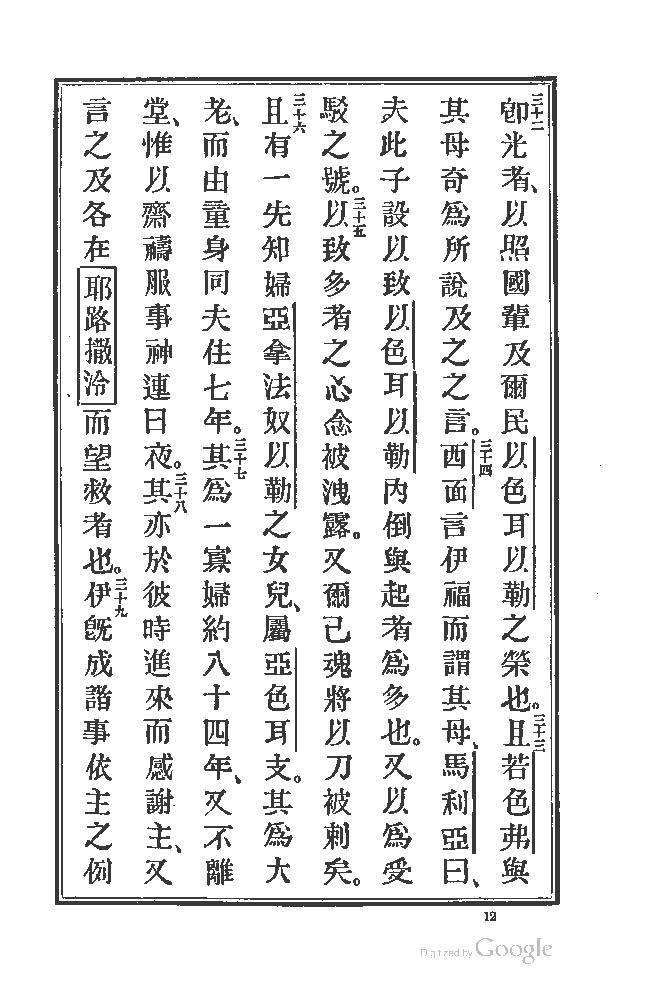 三十二卽光者、以照國輩及爾民以色耳以勒之榮也。三十三且若色弗與
其母奇爲所說及之之言。三十四西面言伊福而謂其母、馬利亞曰、
夫此子設以致以色耳以勒內倒與起者爲多也。又以爲受
駁之號。三十五以致多者之心念被洩露。又爾己魂將以刀被刺矣。
三十六且有一先知婦亞拿法奴以勒之女兒、屬亞色耳支。其爲大
老、而由童身同夫住七年。三十七其爲一寡婦約八十四年、又不離
堂、惟以齋禱服事神連日夜。三十八其亦於彼時進來而感謝主、又
言之及各在耶路撒冷而望救者也。三十九伊旣成諧事依主之例
12
Digitized by Google